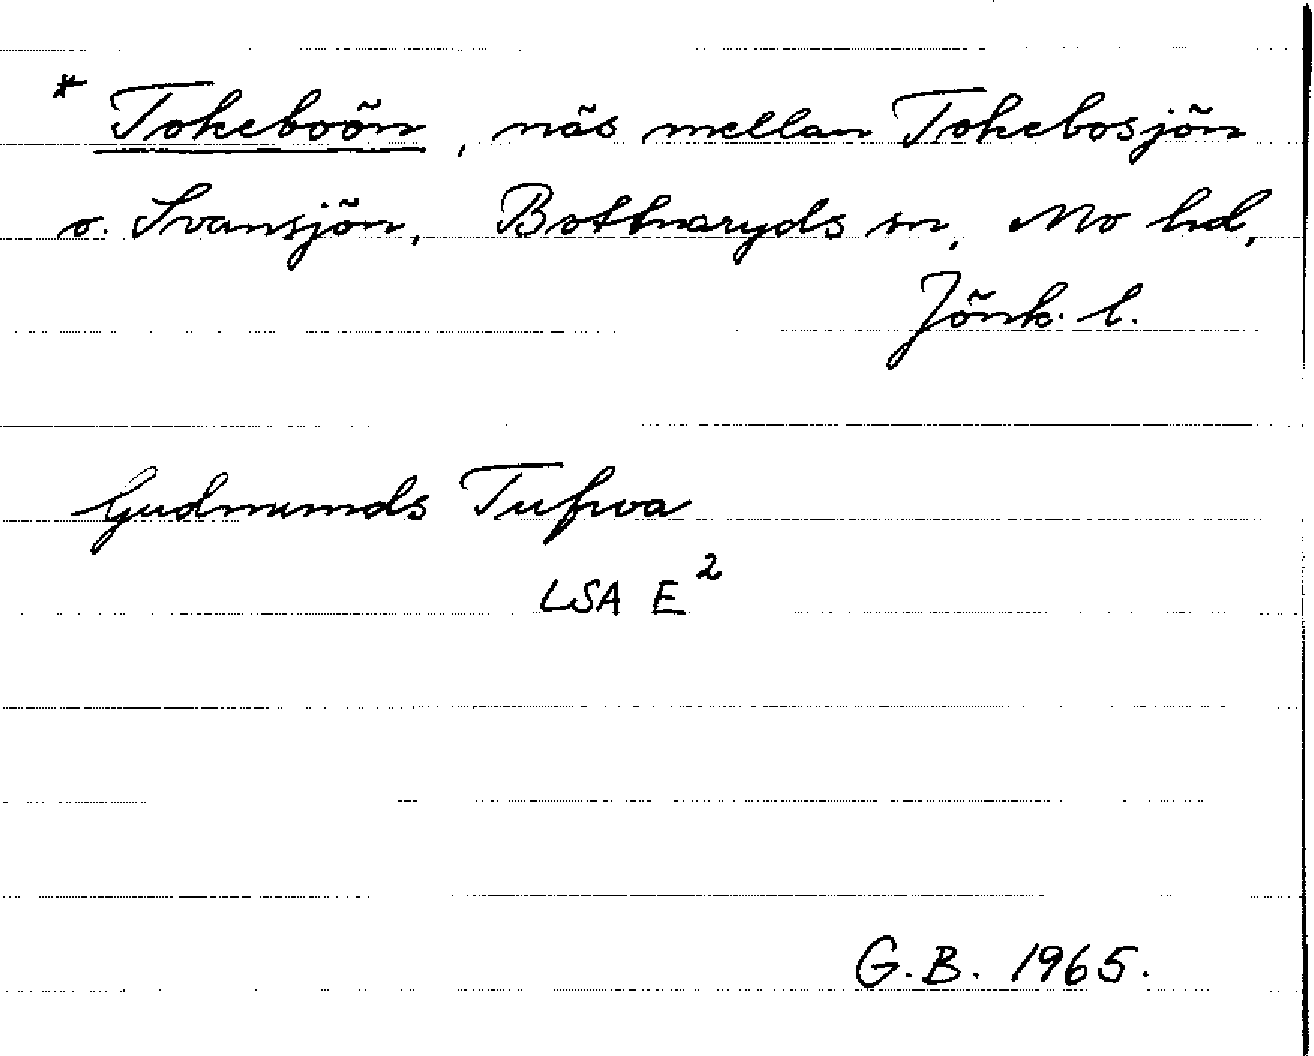 * Tokeboön, näs mellan Tokebosjön
o. Svansjön, Bottnaryds sn, Mo hd,
Jönk. l.
Gudmunds Tufwa
LSA E²
G.B. 1965.